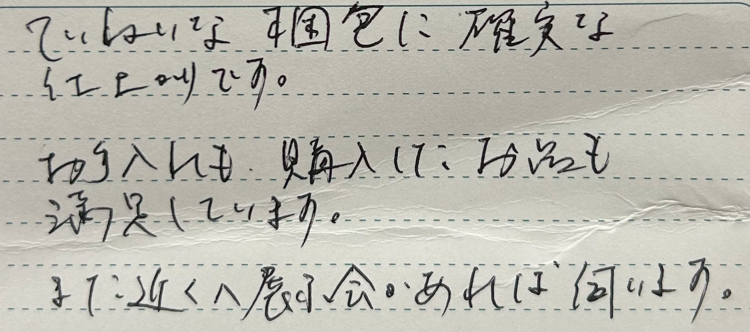 ていねいな梱包に確実な
仕上がりです。
お手入れも、購入したお品も
満足しています。
また近くへ展示会があれば伺います。